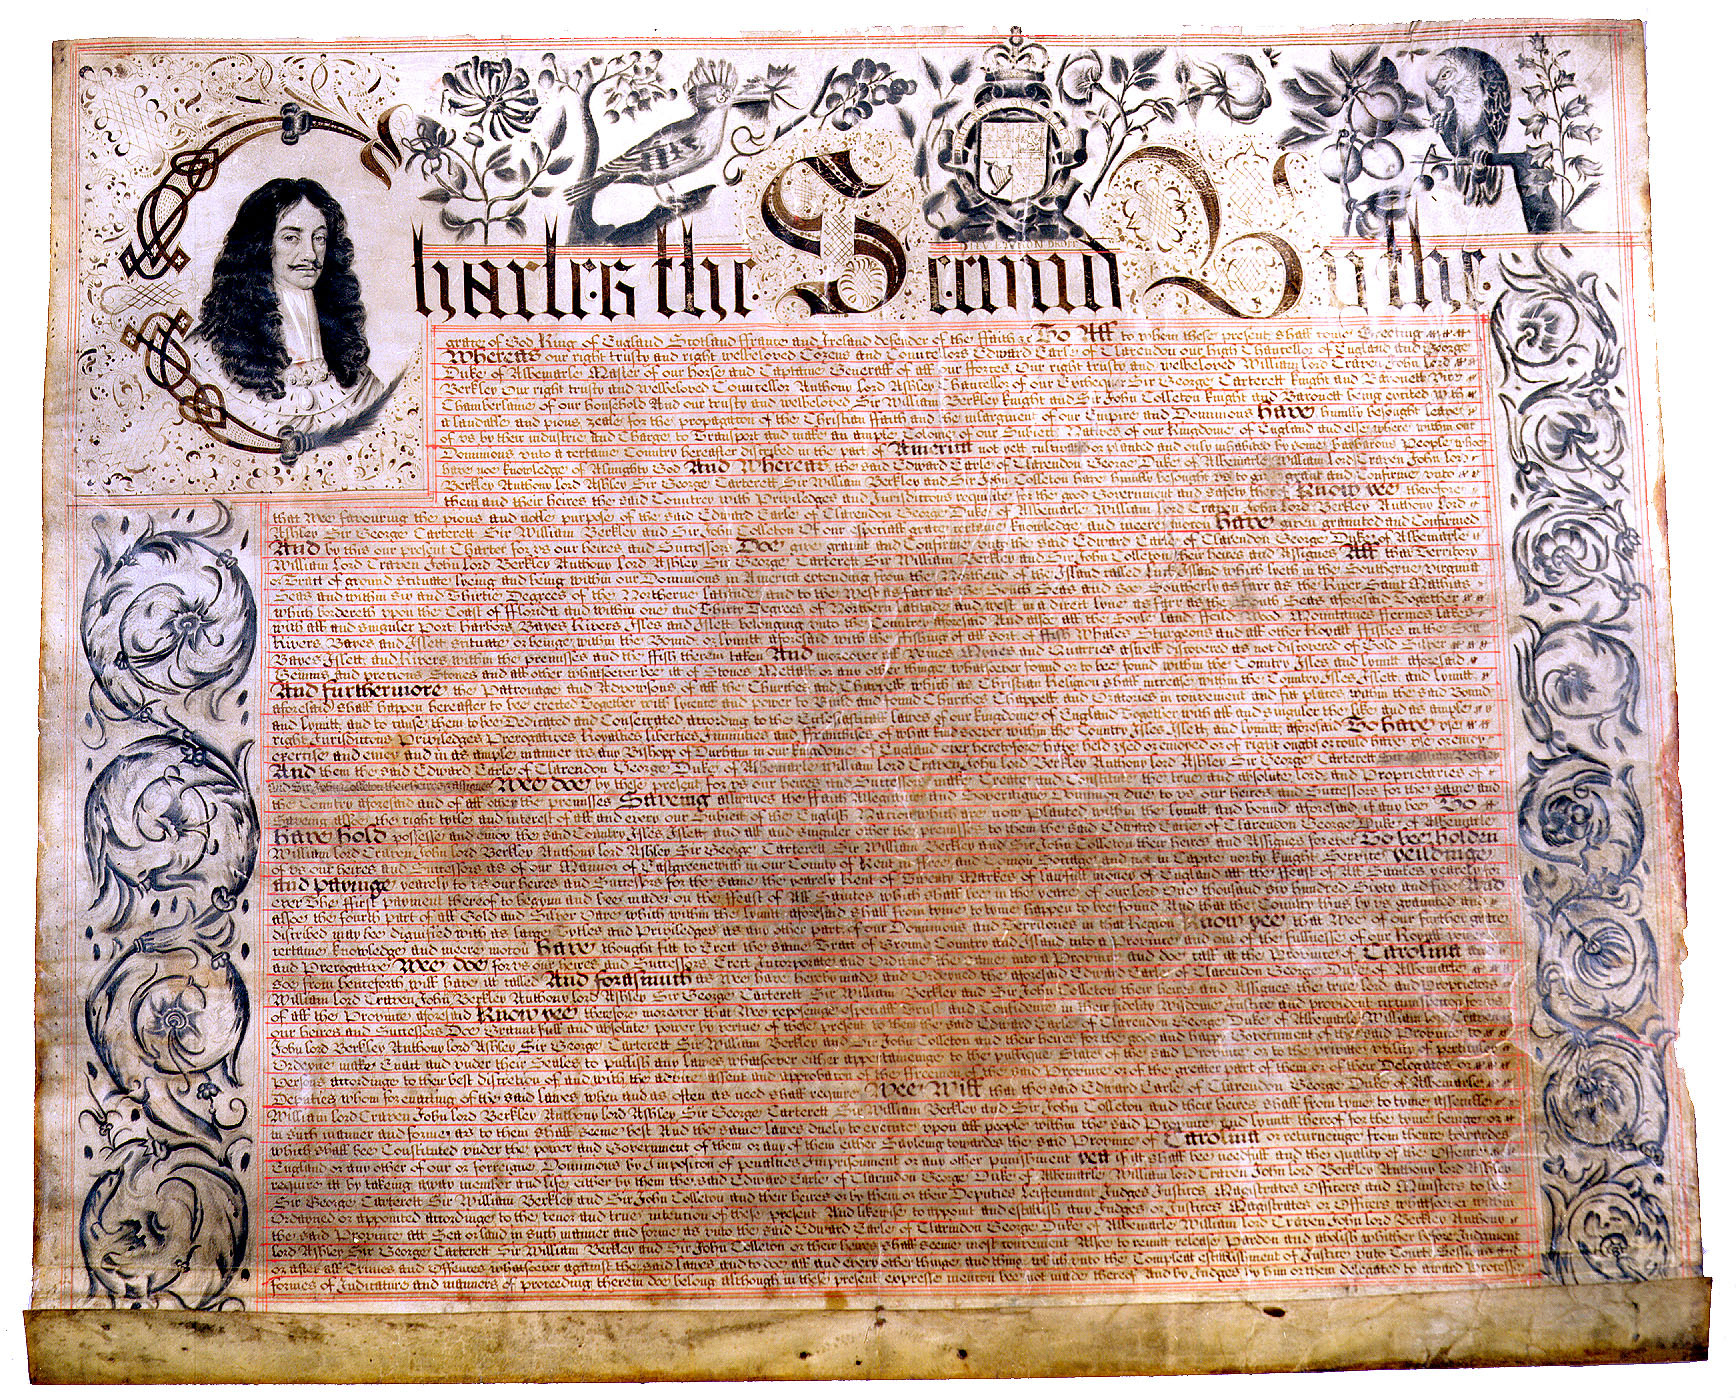 Charles the Second By the
grace of God King of England Scotland ffrance and Ireland defender of the ffaith &c To All to whom these present shall come Greeting
Whereas our right trusty and right welbeloved Cozens and Councellors Edward Earle of Clarendon our high Chancellor of England and George
Duke of Albemarle Master of our horse and Captaine Generall of all our fforces Our right trusty and welbeloved William Lord Craven John Lord
Berkley Our right trusty and welbeloved Councellor Anthony Lord Ashley Chancellor of our Exchequer Sir George Carterett Knight and Baronett Vice
Chamberlane of our household And our trusty and welbeloved Sir William Berkley Knight and Sir John Colleton Knight and Baronett being excited with
a laudable and pious zeale for the propagation of the Christian ffaith and the inlargment of our Empire and Dominions have humbly besought leave
of vs by their industrie and Charge to Transport and make an ample Colonie of our Subiects Natives of our Kingdome of England and else where within our
Dominions vnto a certaine Country hereafter discribed in the part of America not yett cultivated or planted and only inhabited by some barbarous People who
have noe knowledge of Almighty God And Whereas the said Edward Earle of Clarendon George Duke of Albemarle William Lord Craven John Lord
Berkley Anthony lord Ashley Sir George Carterett Sir William Berkley and Sir John Colleton have humbly besought vs to give grant and Confirme vnto
them and their heires the said Countrey with Priviledges and Jurisdictions requisite for the good Government and safety thereof Know yee therefore
that Wee favouring the pious and noble purpose of the said Edward Earle of Clarendon George Duke of Albemarle William Lord Craven John Lord Berkley Anthony Lord
Ashley Sir George Carterett Sir William Berkley and Sir John Colleton Of our especiall grace certaine knowledge and meere motion have given graunted and Confirmed
And by this our present Charter for vs our heires and Successors Doe give graunt and Confirme vnto the said Edward Earle of Clarendon George Duke of Albemarle
William Lord Craven John Lord Berkley Anthony Lord Ashley Sir George Carterett Sir William Berkley and Sir John Colleton their heires and Assignes All that Territory
or Tract of ground scituate lyeing and being within our Dominions in America extending from the North end of the Island called Luck Island which lyeth in the Southerne Virginia
Seas and within six and Thirtie Degrees of the Northerne latitude and to the West as farr as the South Seas and soe Southerly as farr as the River Saint Mathias
which bordereth vpon the Coast of fflorida and within one and Thirty Degrees of Northern Latitude and west in a direct lyne as farr as the South Seas aforesaid Together
with all and singuler Port harbors Bayes Rivers Isles and Islett belonging vnto the Country aforesaid And alsoe all the Soyle land ffeild Wood Mountaines ffermes lakes
Rivers Bayes and Islett scituate or being within the Bound or lymitt aforesaid with the ffishing of all sort of ffish Whales Sturgeons and all other Royall ffishes in the Sea
Bayes Islett and Rivers within the premisses and the ffish therein taken And moreover all Veines Mynes and Quarries aswell discovered as not discovered of Gold Silver
Gemms and precious Stones and all other whatsoever bee itt of Stones Mettall or any other thinge whatsoever found or to bee found within the Country Isles and lymitt aforesaid
And furthermore the Patronage and Advowsons of all the Churches and Chappells which as Christian Religion shall increase within the Country Isles Islett and lymitt
aforesaid shall happen hereafter to bee erected Together with lycense and power to Build and found Churches Chappells and Oratories in convenient and fitt places within the said Bound
and lymitt and to cause them to bee Dedicated and Consecrated according to the Eclesiasticall lawes of our Kingdome of England Together with all and singuler the like and as ample
right Jurisdictions Priviledges Prerogatives Royalties liberties Imunities and ffranchises of what kind soever within the Country Isles Islett and lymitt aforesaid To have vse
exercise and enioy and in as ample manner as any Bishopp of Durham in our Kingdome of England ever heretofore have held vsed or enioyed or of right ought or could have vse or enioy
And them the said Edward Earle of Clarendon George Duke of Albemarle William Lord Craven John Lord Berkley Anthony Lord Ashley Sir George Carterett Sir William Berkley
and Sir John Colleton their heires and assignes Wee doe by these present for vs our heires and Successors make Create and Constitute the true and absolute lord and Proprietaries of
the Country aforesaid and of all other the premisses Saveing allwayes the ffaith Allegiance and Soveraigne Dominion due to vs our heires and Successors for the same and
Saveing alsoe the right title and interest of all and every our Subiect of the English Nation which are now Planted within the lymitt and bound aforesaid if any bee To
have hold possesse and enioy the said Country Isles Islett and all and singuler other the premisses to them the said Edward Earle of Clarendon George Duke of Albemarle
William lord Craven John lord Berkley Anthony lord Ashley Sir George Carterett Sir William Berkley and Sir John Colleton their heires and Assignes forever To bee holden
of vs our heires and Successors as of our Mannor of Eastgreenewich in our County of Kent in ffree and Comon Soccage and not in Capite nor by Knight Service Yeildinge
and payinge yearely to vs our heires and Successors for the same the yearely Rent of Twenty Markes of lawfull money of England att the ffeast of All Saintes yearely for
ever The ffirst payment thereof to begynn and bee made on the ffeast of All Saintes which shall bee in the yeare of our lord One thousand six hundred Sixty and five And
alsoe the fourth part of all Gold and Silver Oare which within the lymitt aforesaid shall from tyme to tyme happen to bee found And that the Country thus by vs graunted and
discribed may bee dignified with as large Tytles and Priviledges as any other part of our Dominions and Territories in that Region Know yee that Wee of our further grace
certaine knowledge and meere motion have thought fitt to Erect the same Tract of Ground Country and Island into a Province and out of the fullnesse of our Royall power
and Prerogative Wee doe for vs our heires and Successors Erect Incorporate and Ordaine the same into a Province and doe call itt the Province of Carolina and
soe from henceforth will have itt called And forasmuch as Wee have hereby made and Ordeyned the aforesaid Edward Earle of Clarendon George Duke of Albemarle
William Lord Craven John Lord Berkley Anthony lord Ashley Sir George Carterett Sir William Berkley and Sir John Colleton their heires and Assignes the true lord and Proprietors
of all the Province aforesaid Know yee therefore moreover that Wee reposeing especiall Trust and Confidence in their fidelity Wisdom Justice and provident circumspection for vs
our heires and Successors Doe Graunt full and absolute power by vertue of these present to them the said Edward Earle of Clarendon George Duke of Albemarle William Lord Craven
John lord Berkley Anthony lord Ashley Sir George Carterett Sir William Berkley and Sir John Colleton and their heires for the good and happy Government of the said Province to
Ordeyne make Enact and vnder their Seales to publish any lawes whatsoever either apperteineing to the publique State of the said Province or to the private vtility of perticuler
Persons accordinge to their best discretion of and with the advice assent and approbation of the ffreemen of the said Province or of the greater part of them or of their Delegates or
Deputies whom for enacting of the said lawes when and as often as need shall require Wee Will that the said Edward Earle of Clarendon George Duke of Albemarle
William lord Craven John lord Berkley Anthony lord Ashley Sir George Carterett Sir William Berkley and Sir John Colleton and their heires shall from tyme to tyme assemble
in such manner and forme as to them shall seeme best And the same lawes duely to execute vpon all people within the said Province and lymitt thereof for the tyme beinge or
which shall bee Constituted vnder the power and Government of them or any of them either Sayleing towardes the said Province of Carolina or returneinge from thence towardes
England or any other of our or forreigne Dominions by Imposition of penalties Imprisonment or any other punishment yea if itt shall bee needfull and the quality of the Offence
require itt by takeing away member and life either by them the said Edward Earle of Clarendon George Duke of Albemarle William lord Craven John lord Berkley Anthony lord Ashley
Sir George Carterett Sir William Berkley and Sir John Colleton and their heires or by them or their Deputies leiftennant Judges Justices Magistrates Officers and Ministers to bee
Ordeyned or appointed accordinge to the tenor and true intention of these present And likewise to appoint and establish any Judges or Justices Magistrates or Officers whatsoever within
the said Province att Sea or land in such manner and forme as vnto the said Edward Earle of Clarendon George Duke of Albemarle William lord Craven John lord Berkley Anthony
lord Ashley Sir George Carterett Sir William Berkley and Sir John Colleton or their heires shall seeme most convenient Alsoe to remitt release Pardon and abolish whither before Judgment
or after all Crimes and Offences whatsoever against the said lawes and to doe all and every other thinge and things which vnto the Compleat establishment of Justice vnto Courts Sessions and
formes of Judicature and manners of proceeding therein doe belong although in these present expresse mention bee not made thereof And by Judges by him or them delegated to award Processe